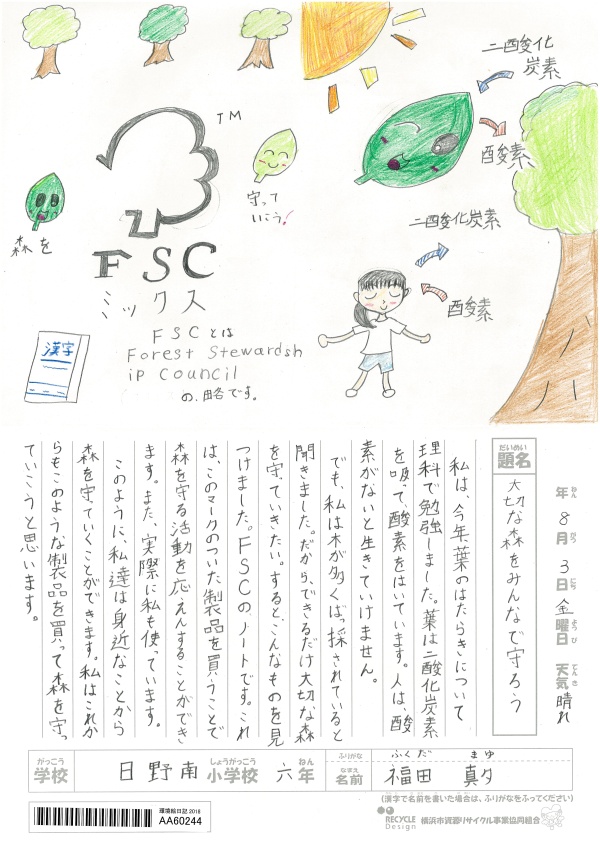 二酸化
炭素
酸素
TM
守って
いこう!
森を
二酸化炭素
酸素
FSC
ミックス
漢字
FSCとは
Forest Stewardsh
ip Council
の、略です。
年 ねん
8月 がつ
3日 にち
金曜日 ようび
天気 てんき 晴れ
だいめい
題名
大切な森をみんなで守ろう
私は、今年、葉のはたらきについて
理科で勉強しました。葉は二酸化炭素
を吸って、酸素をはいています。人は、酸
素がないと生きていけません。
でも、私は木が多くばっ採されていると
聞きました。だから、できるだけ大切な森
を守っていきたい。すると、こんなものを見
つけました。FSCのノートです。これ
は、このマークのついた製品を買うことで
森を守る活動を応えんすることができ
ます。また、実際に私も使っています。
このように、私達は身近なことから
森を守っていくことができます。私はこれか
らもこのような製品を買って森を守っ
ていこうと思います。
がっこう しょうがっこう ねん ふりがな ふくだ まゆ
学校 日野南 小学校 六年 なまえ 名前 福田 真夕
(漢字で名前を書いた場合は、ふりがなをふってください)
環境絵日記 2018
AA60244
RECYCLE
Design
横浜市資源リサイクル事業協同組合